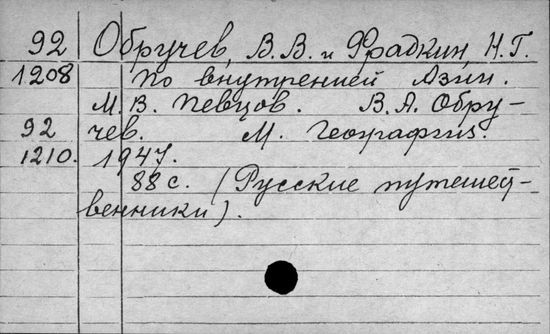 92 Обручев, В.В. и Фрадкин, Н.Г.
1208 По внутренней Азии.
М.В. Певцов. В.А. Обру-
92 чев. М. Географгиз.
1210. 1947.
88 с. (Русские путешест-
венники).